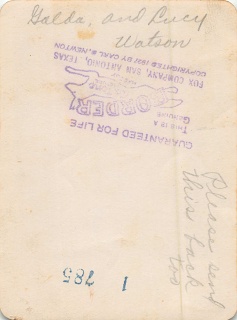 Galda, and Lucy
Watson
THIS IS A
GENUINE
BORDER
GUARANTEED FOR LIFE
FOX COMPANY, SAN ANTONIO, TEXAS
COPYRIGHTED 1937 BY CARL D. NEWTON
Please send
this back
too
1 785